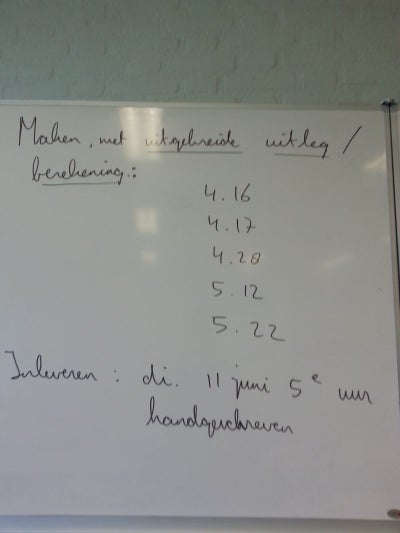 Maken, met uitgebreide uitleg /
berekening:
4.16
4.17
4.28
5.12
5.22
Inleveren: di. 11 juni 5e uur
handgeschreven